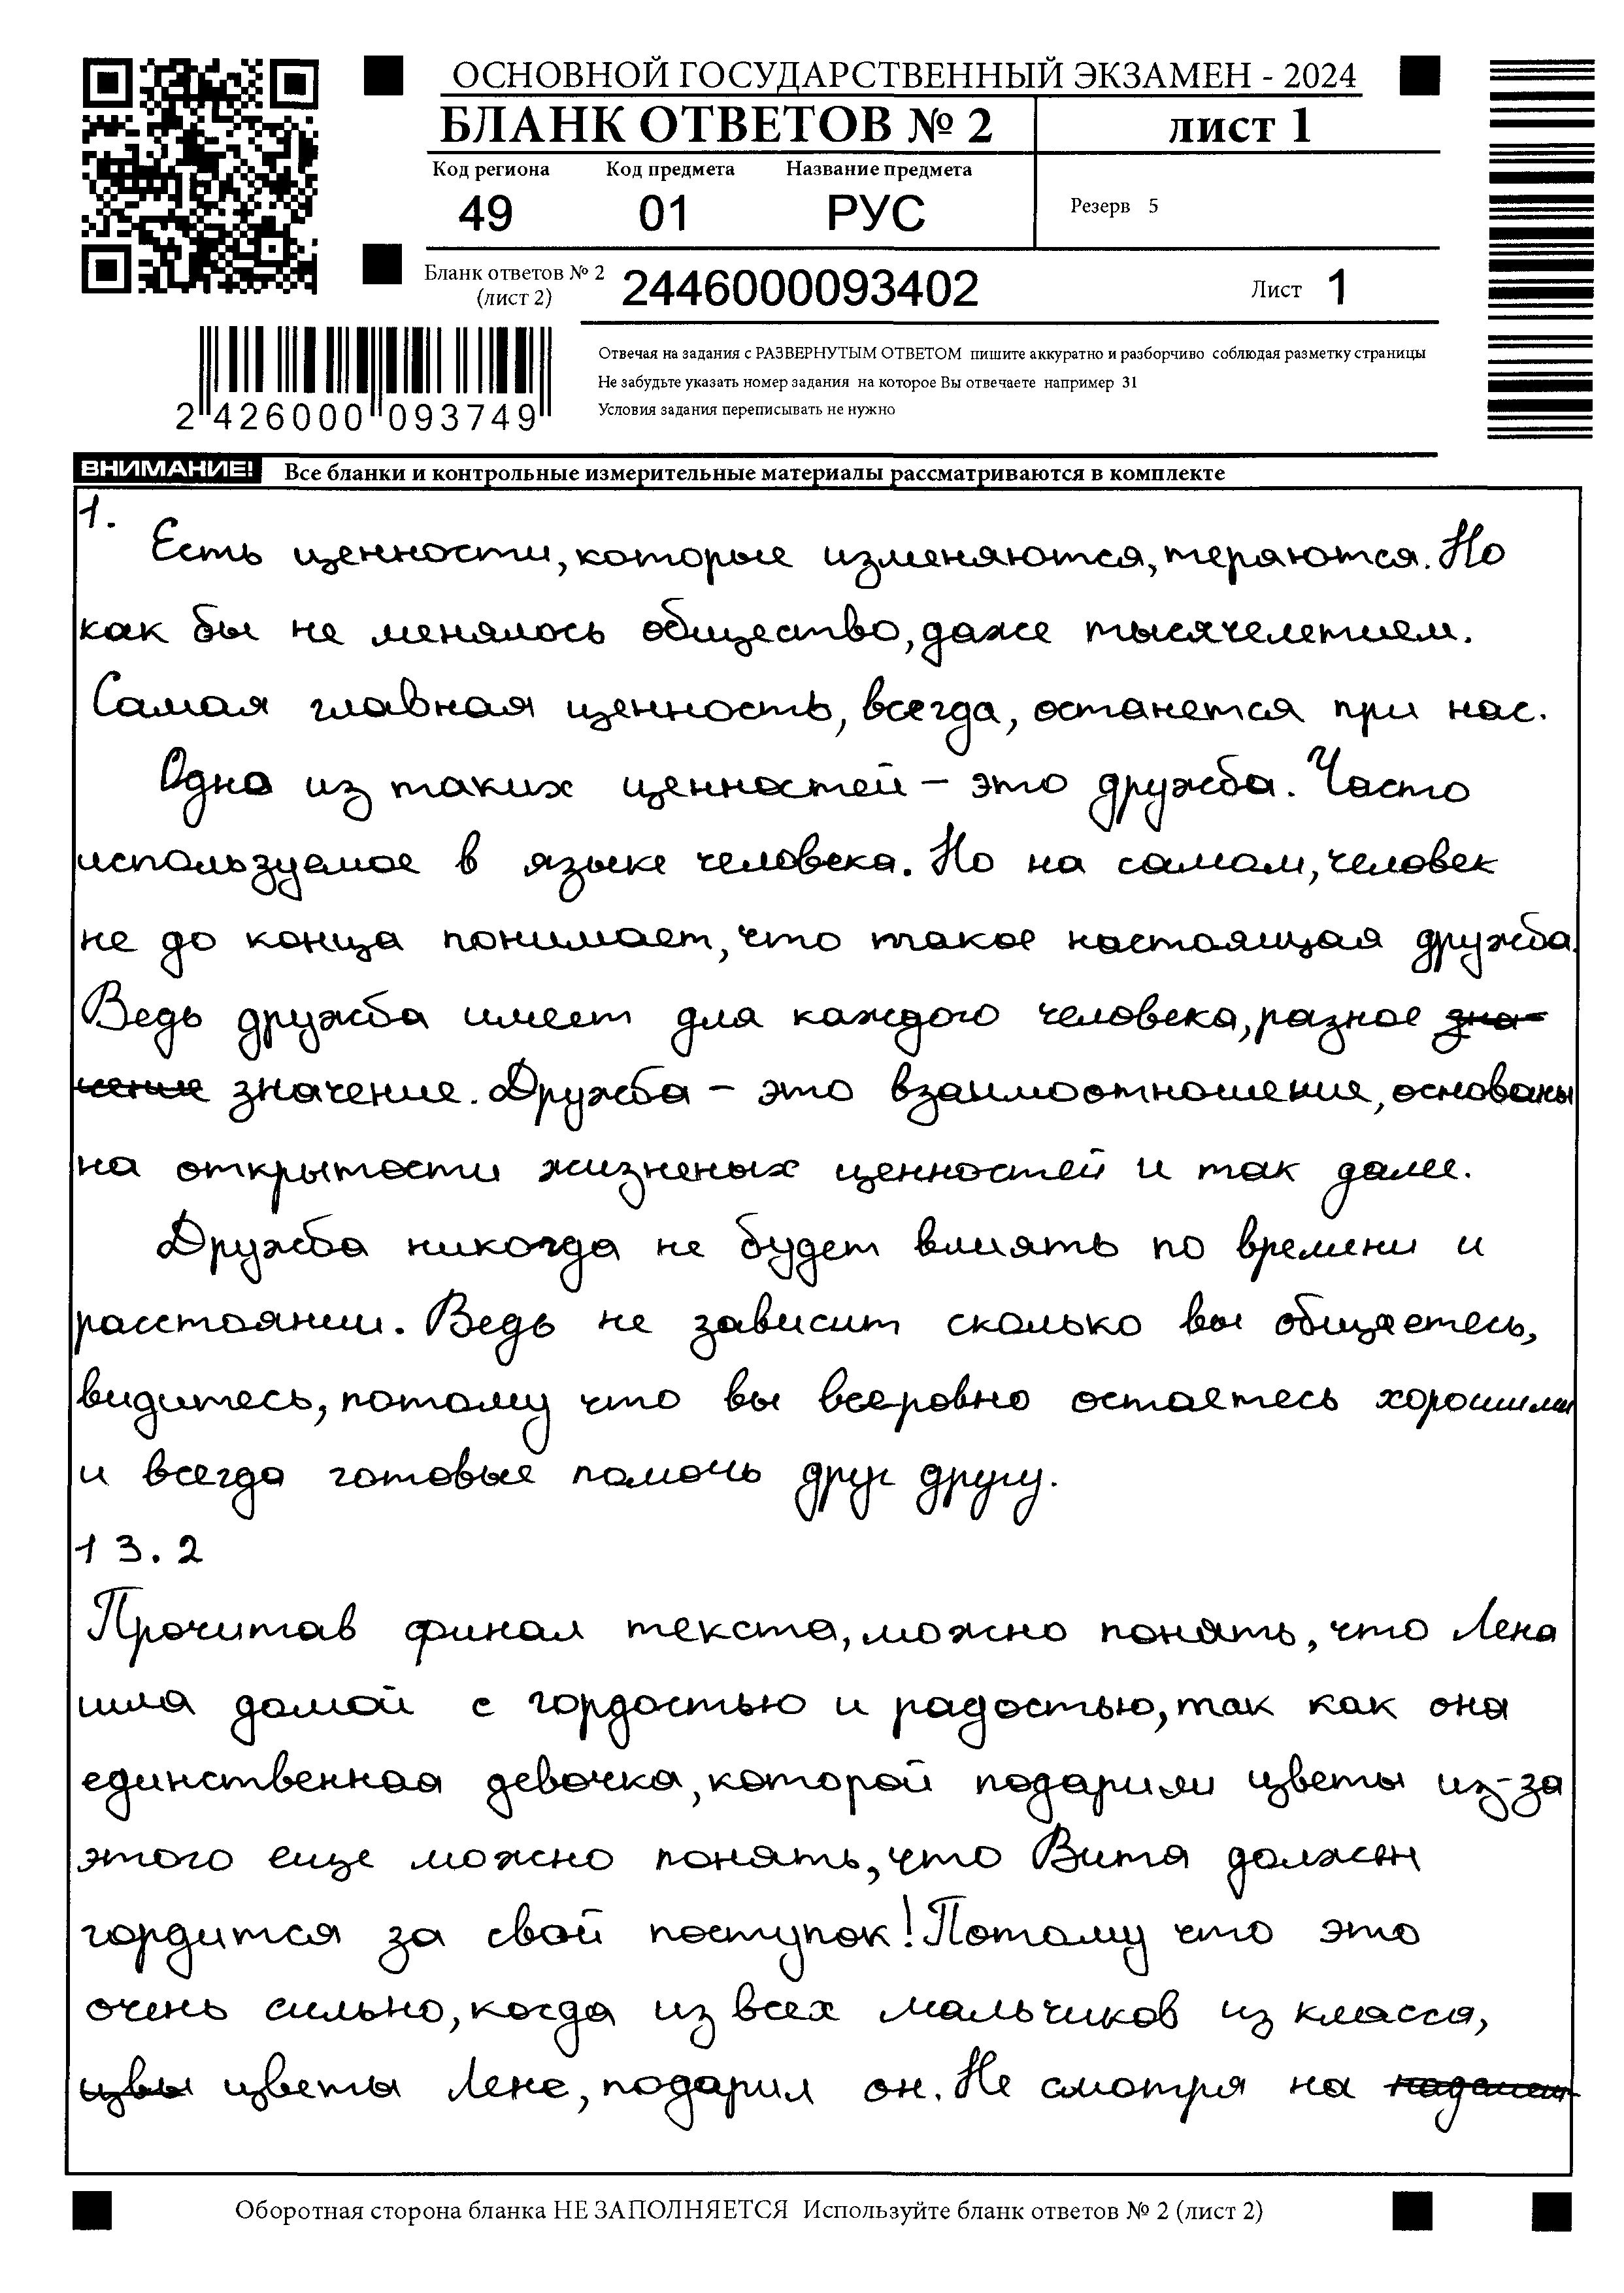 ОСНОВНОЙ ГОСУДАРСТВЕННЫЙ ЭКЗАМЕН - 2024
БЛАНК ОТВЕТОВ № 2 лист 1
Код региона Код предмета Название предмета
49 01 РУС Резерв 5
Бланк ответов № 2 (лист 2) 2446000093402 Лист 1
Отвечая на задания с РАЗВЕРНУТЫМ ОТВЕТОМ пишите аккуратно и разборчиво соблюдая разметку страницы
Не забудьте указать номер задания на которое Вы отвечаете например 31
Условия задания переписывать не нужно
2 426000 093749
ВНИМАНИЕ! Все бланки и контрольные измерительные материалы рассматриваются в комплекте
1.
Есть ценности, которые изменяются, теряются. Но
как бы не менялось общество, даже тысячелетием.
Самая главная ценность, всегда, останется при нас.
Одна из таких ценностей – это дружба. Часто
используемое в языке человека. Но на самом, человек
не до конца понимает, что такое настоящая дружба.
Ведь дружба имеет для каждого человека, разное зна-
чение значение. Дружба – это взаимоотношения, основаны
на открытости жизненых ценностей и так далее.
Дружба никогда не будет влиять по времени и
расстоянии. Ведь не зависит сколько вы общаетесь,
видитесь, потому что вы всеровно остаетесь хорошими
и всегда готовые помочь друг другу.
13.2
Прочитав финал текста, можно понять, что Лена
шла домой с гордостью и радостью, так как она
единственная девочка, которой подарили цветы из-за
этого еще можно понять, что Витя должен
гордится за свой поступок! Потому что это
очень сильно, когда из всех мальчиков из класса,
цвы цветы Лене, подарил он. Не смотря на
Оборотная сторона бланка НЕ ЗАПОЛНЯЕТСЯ Используйте бланк ответов № 2 (лист 2)